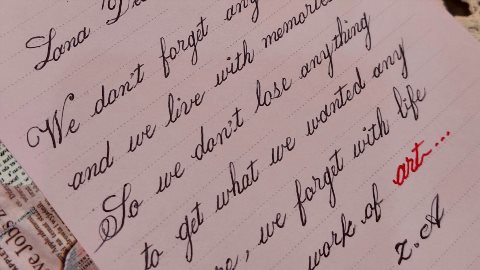 Lana De
We don't forget any
and we live with memories
So we don't lose anything
to get what we wanted any
, we forget with life
work of art...
z.A
ve Jobs